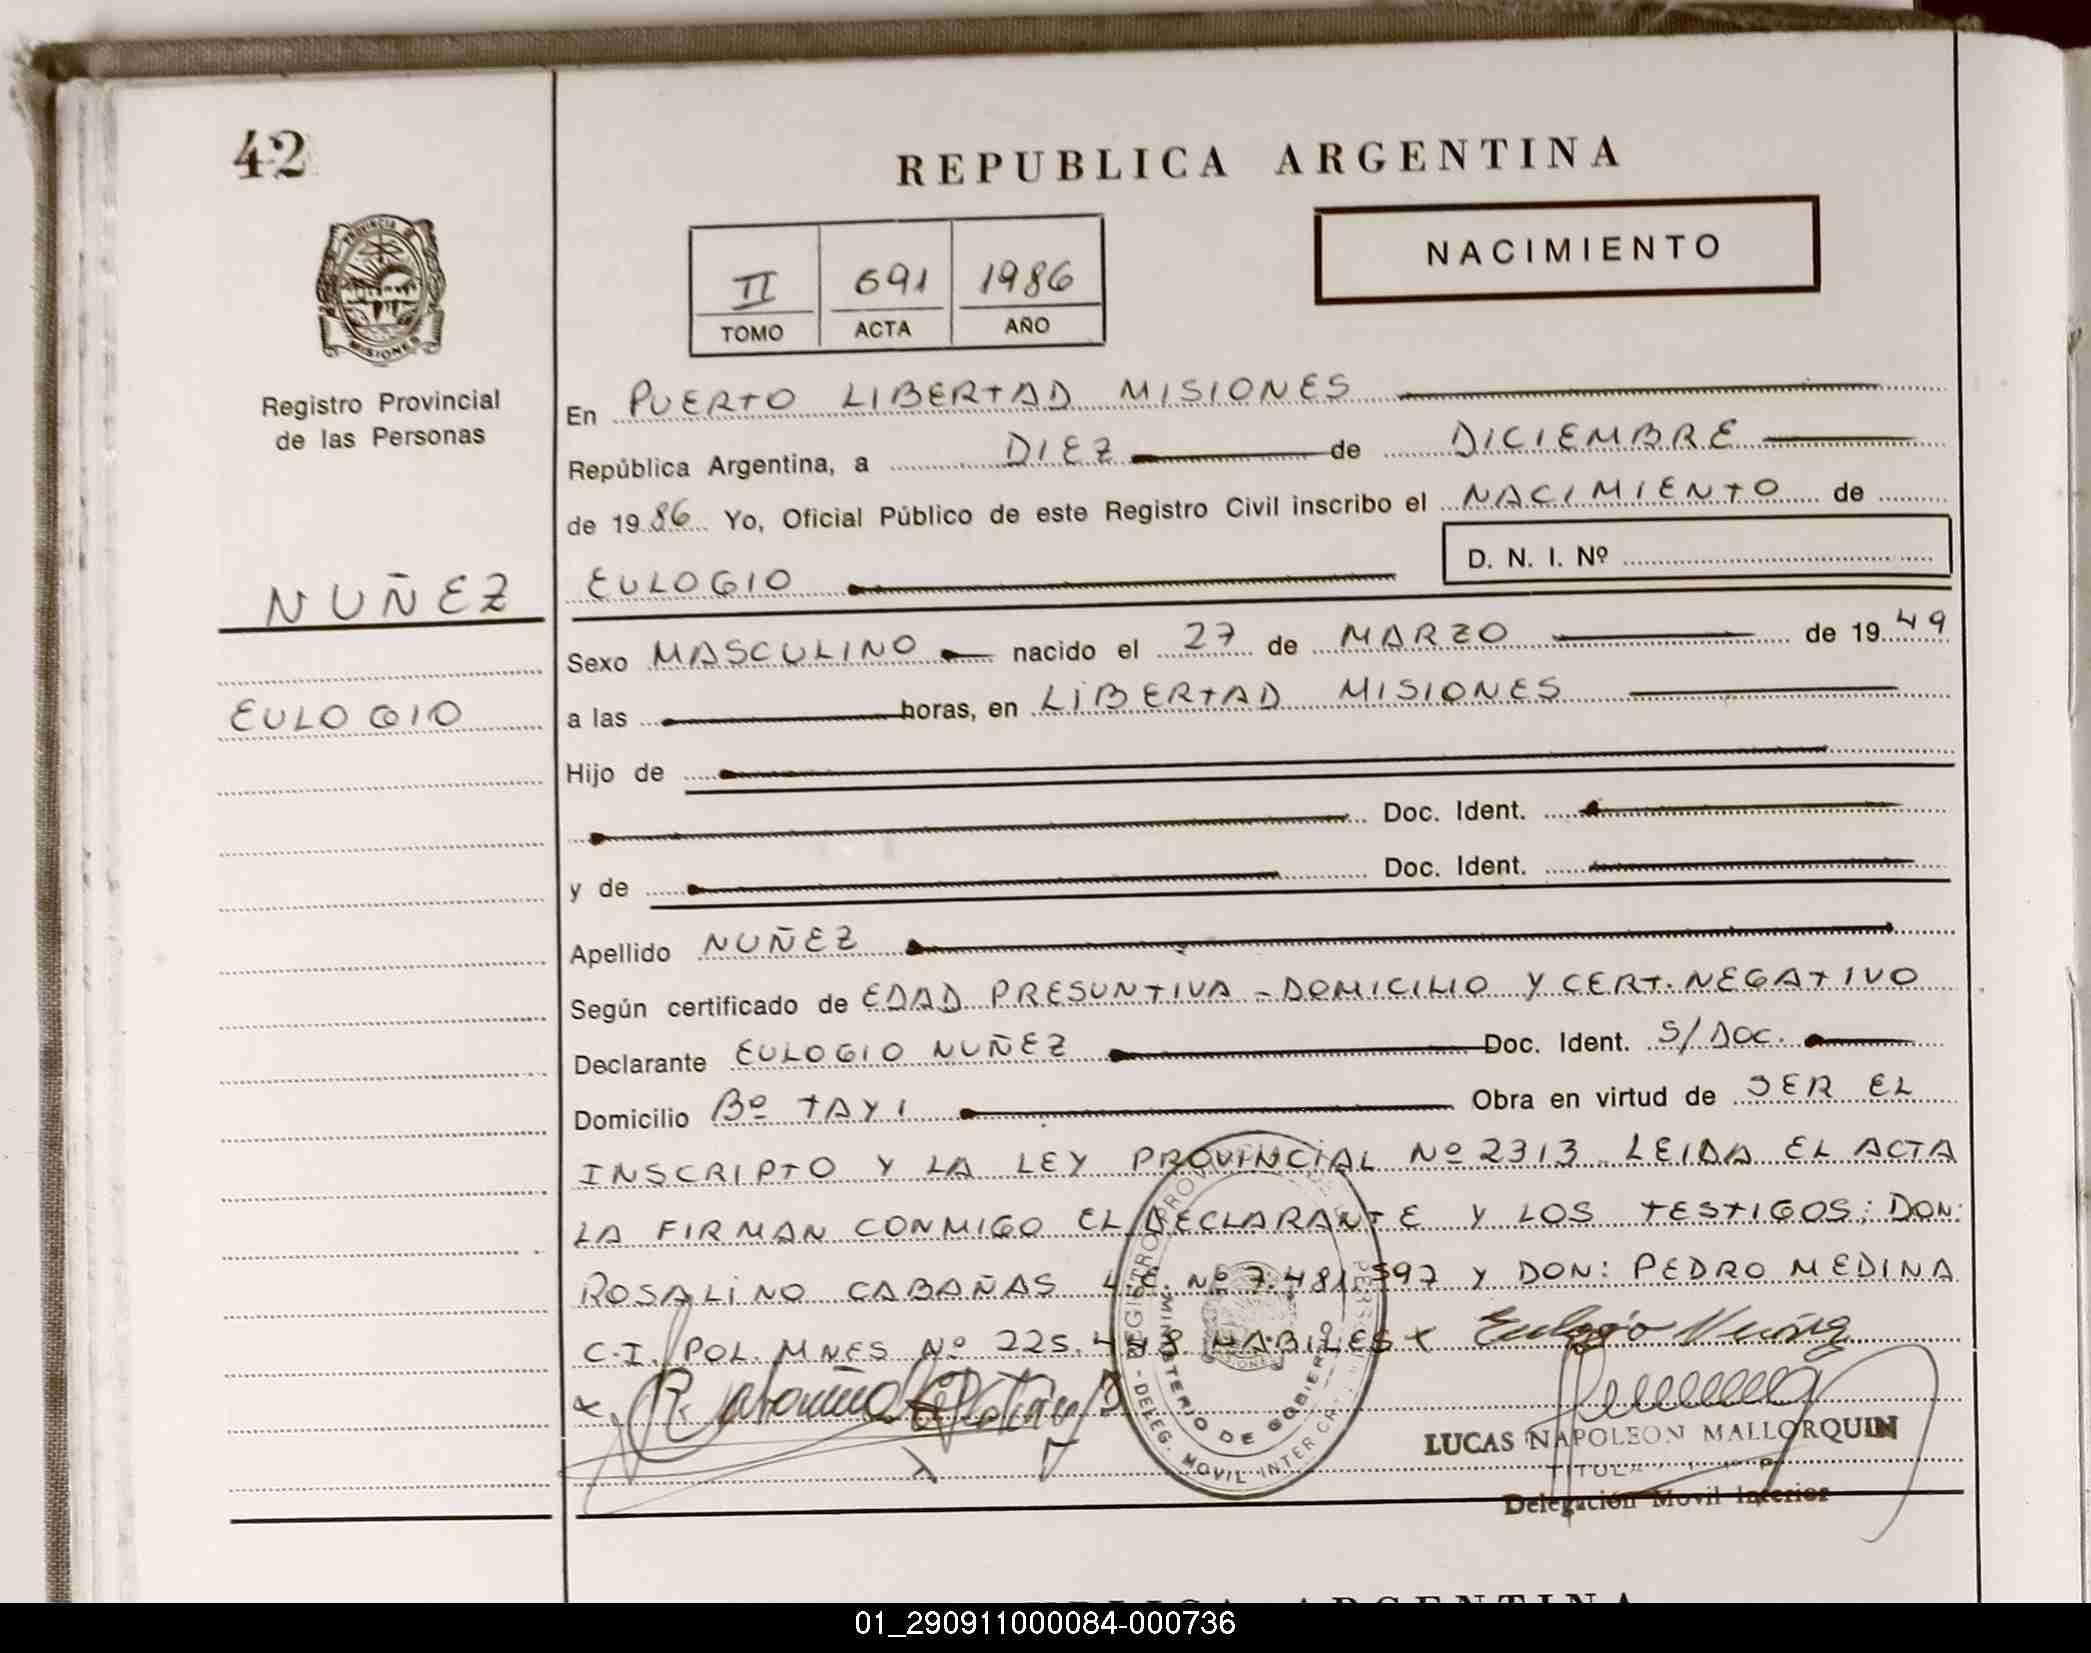 42
REPUBLICA ARGENTINA
NACIMIENTO
II 691 1986
TOMO ACTA AÑO
PROVINCIA DE
MISIONES
Registro Provincial
de las Personas
En PUERTO LIBERTAD MISIONES
República Argentina, a DIEZ de DICIEMBRE
de 1986 Yo, Oficial Público de este Registro Civil inscribo el NACIMIENTO de
D. N. I. Nº
NUÑEZ
EULOGIO
EULOGIO
Sexo MASCULINO nacido el 27 de MARZO de 1949
a las horas, en LIBERTAD MISIONES
Hijo de
Doc. Ident.
y de Doc. Ident.
Apellido NUÑEZ
Según certificado de EDAD PRESUNTIVA - DOMICILIO Y CERT. NEGATIVO
Declarante EULOGIO NUÑEZ Doc. Ident. S/DOC.
Domicilio Bº TAYI Obra en virtud de SER EL
INSCRIPTO Y LA LEY PROVINCIAL Nº 2313 LEIDA EL ACTA
LA FIRMAN CONMIGO EL DECLARANTE Y LOS TESTIGOS; DON:
ROSALINO CABAÑAS L.E. Nº 7.481.597 Y DON: PEDRO MEDINA
C.I. POL. MNES Nº 225. HABILES x Eulogio Nuñez
MINISTERIO DE GOBIERNO
DELEG. MOVIL INTERIOR
LUCAS NAPOLEON MALLORQUIN
Delegación Movil Interior
REPUBLICA ARGENTINA
01_290911000084-000736